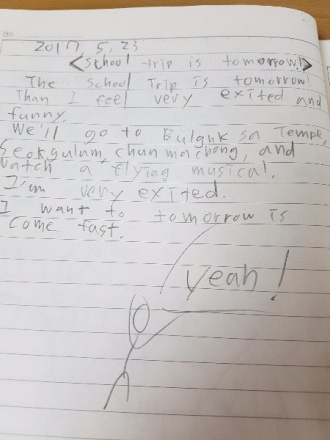 2017. 5. 23
<school trip is tomorrow!>
The School Trip is tomorrow!
Than I feel very exited and
funny.
We'll go to Bulguk sa Temple,
Seokgulum, chun ma chong, and
watch a flying musical.
I'm very exited.
I want to tomorrow is
come fast.
yeah!